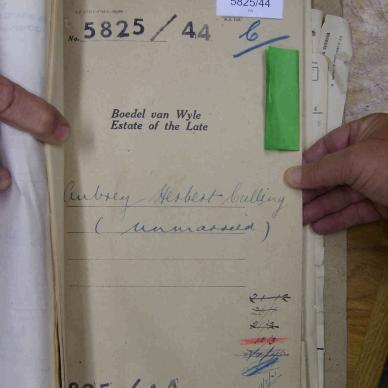 5825/44
No. 5825/44
6
Boedel van Wyle
Estate of the Late
Aubrey Herbert Culling
(Unmarried)
21-12
10/3